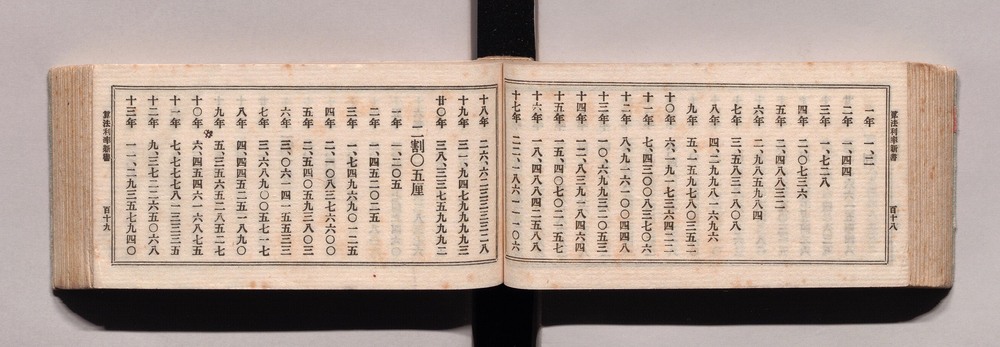 算法利率新書　百十八
一年　一、二
二年　一、四四
三年　一、七二八
四年　二、〇七三六
五年　二、四八八三二
六年　二、九八五九八四
七年　三、五八三一八〇八
八年　四、二九九八一六九六
九年　五、一五九七八〇三五二
十〇年　六、一九一七三六四二二
十一年　七、四三〇〇八三七〇六
十二年　八、九一六一〇〇四四八
十三年　一〇、六九九三二〇五三
十四年　一二、八三九一八四六四
十五年　一五、四〇七〇二一五七
十六年　一八、四八八四二五八八
十七年　二二、一八六一一一〇六
十八年　二六、六二三三三三二八
十九年　三一、九四七九九九九三
廿〇年　三八、三三七五九九九二
二割〇五厘
一年　一、二〇五
二年　一、四五二〇二五
三年　一、七四九六九〇一二五
四年　二、一〇八三七六六〇〇
五年　二、五四〇五九三八〇三
六年　三、〇六一四一五五三三
七年　三、六八九〇〇五七一七
八年　四、四四五二五一八九〇
九年　五、三五六五二八五二七
十〇年　六、四五四六一六八七五
十一年　七、七七七八一三三三五
十二年　九、三七二二六五〇六八
十三年　一一、二九三五七九四〇
算法利率新書　百十九